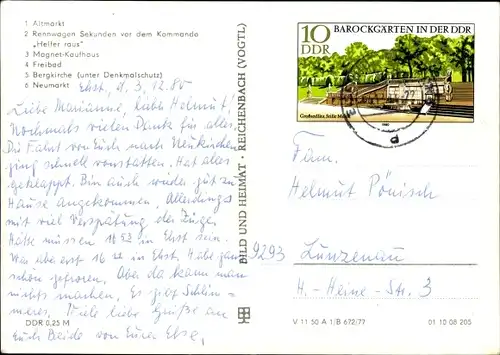 1 Altmarkt
2 Rennwagen Sekunden vor dem Kommando
„Helfer raus"
3 Magnet-Kaufhaus
4 Freibad
5 Bergkirche (unter Denkmalschutz)
6 Neumarkt
Ehst, d. 3. 12. 80
Liebe Marianne, lieber Helmut!
Nochmals vielen Dank für alles.
Die Fahrt von Euch nach Neukirchen
ging schnell vonstatten. Hat alles
geklappt. Bin auch wieder gut zu
Hause angekommen. Allerdings
mit viel Verspätung der Züge.
Hätte müssen 16 53 in Ehst sein.
War aber erst in Ehst. Habe ganz
schön gefroren. Aber da kann man
nichts machen. Es gibt Schlim-
meres. Viele liebe Grüße an
Euch Beide von Eurer Else.
DDR 0,25 M
BILD UND HEIMAT · REICHENBACH (VOGTL)
10
DDR
BAROCKGÄRTEN IN DER DDR
Großsedlitz, Stille Musik
1980
Fam.
Helmut Pönisch
9293 Lunzenau
H.-Heine-Str. 3
V 11 50 A 1/B 672/77
01 10 08 205